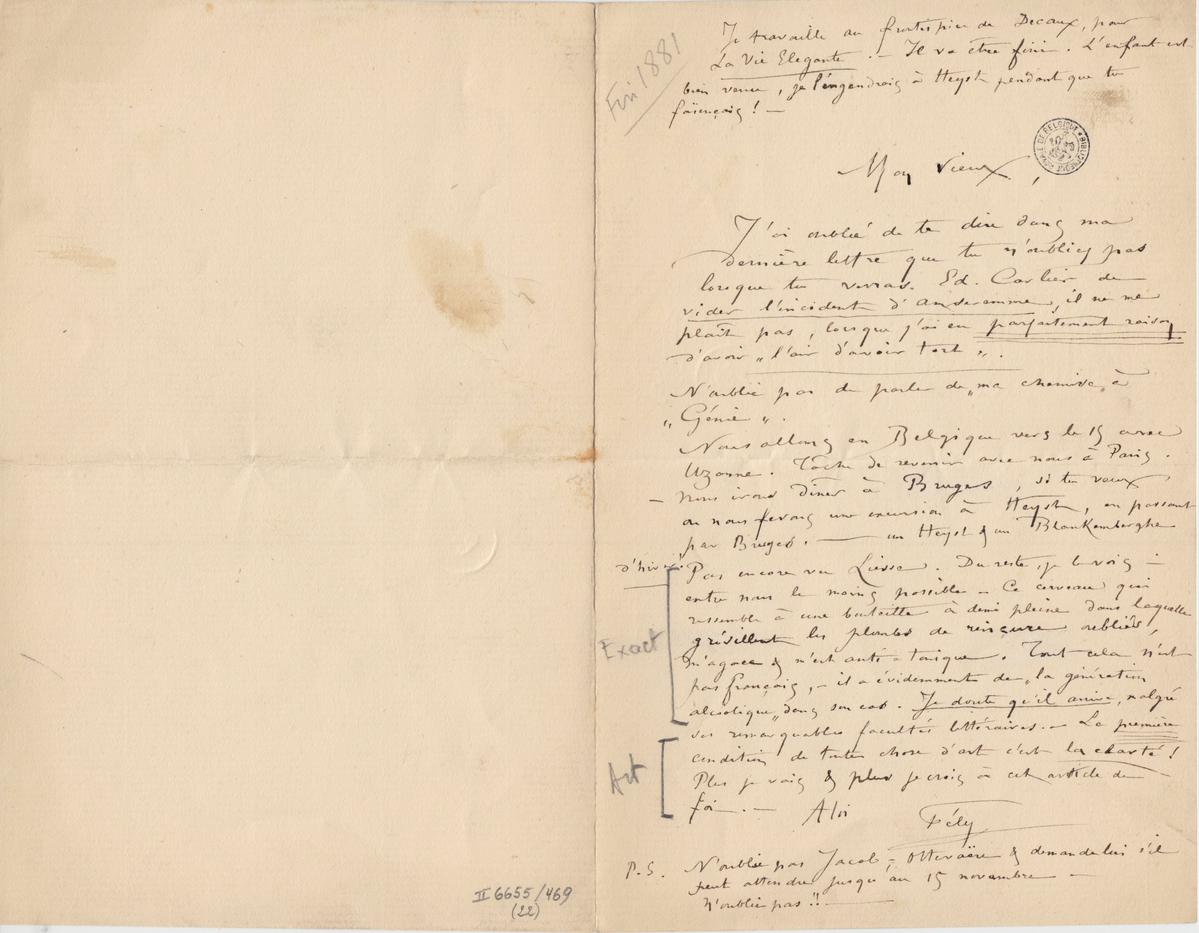 Je travaille au frontispice de Decaux, pour
La Vie Elegante. — Il va être fini. L'enfant est
bien venu, je l'engendrais à Heyst pendant que tu
faïençais ! —
Fin 1881
BIBLIOTHEQUE ROYALE DE BELGIQUE
Mon vieux,
J'ai oublié de te dire dans ma
dernière lettre que tu n'oublies pas
lorsque tu verras Ed. Carlier de
vider l'incident d'Anseremme, il ne me
plaît pas, lorsque j'ai eu parfaitement raison
d'avoir „l'air d'avoir tort".
N'oublie pas de parler de „ma chemise" à
„Génie".
Nous allons en Belgique vers le 15 avec
Uzanne. Tâche de revenir avec nous à Paris.
— Nous irons dîner à Bruges, si tu veux
ou nous ferons une excursion à Heyst, en passant
par Bruges. — un Heyst & un Blankemberghe
d'hiver.
Pas encore vu Liesse. Du reste, je le vois —
entre nous le moins possible — Ce cerveau qui
ressemble à une bouteille à demi pleine dans laquelle
grésillent les plombs de rinçure oubliés,
Exact
m'agace & m'est anti-tonique. Tout cela n'est
pas français, — il a évidemment de „la génération
alcoolique" dans son cas. Je doute qu'il arrive, malgré
ses remarquables facultés littéraires. — La première
condition de toutes chose d'art c'est la clarté !
Art
Plus je vais & plus je crois à cet article de
foi. — A toi
Fély
P.S. N'oublie pas Jacob- & demande lui s'il
peut attendre jusqu'au 15 novembre —
N'oublie pas !! —
II 6655/469
(22)